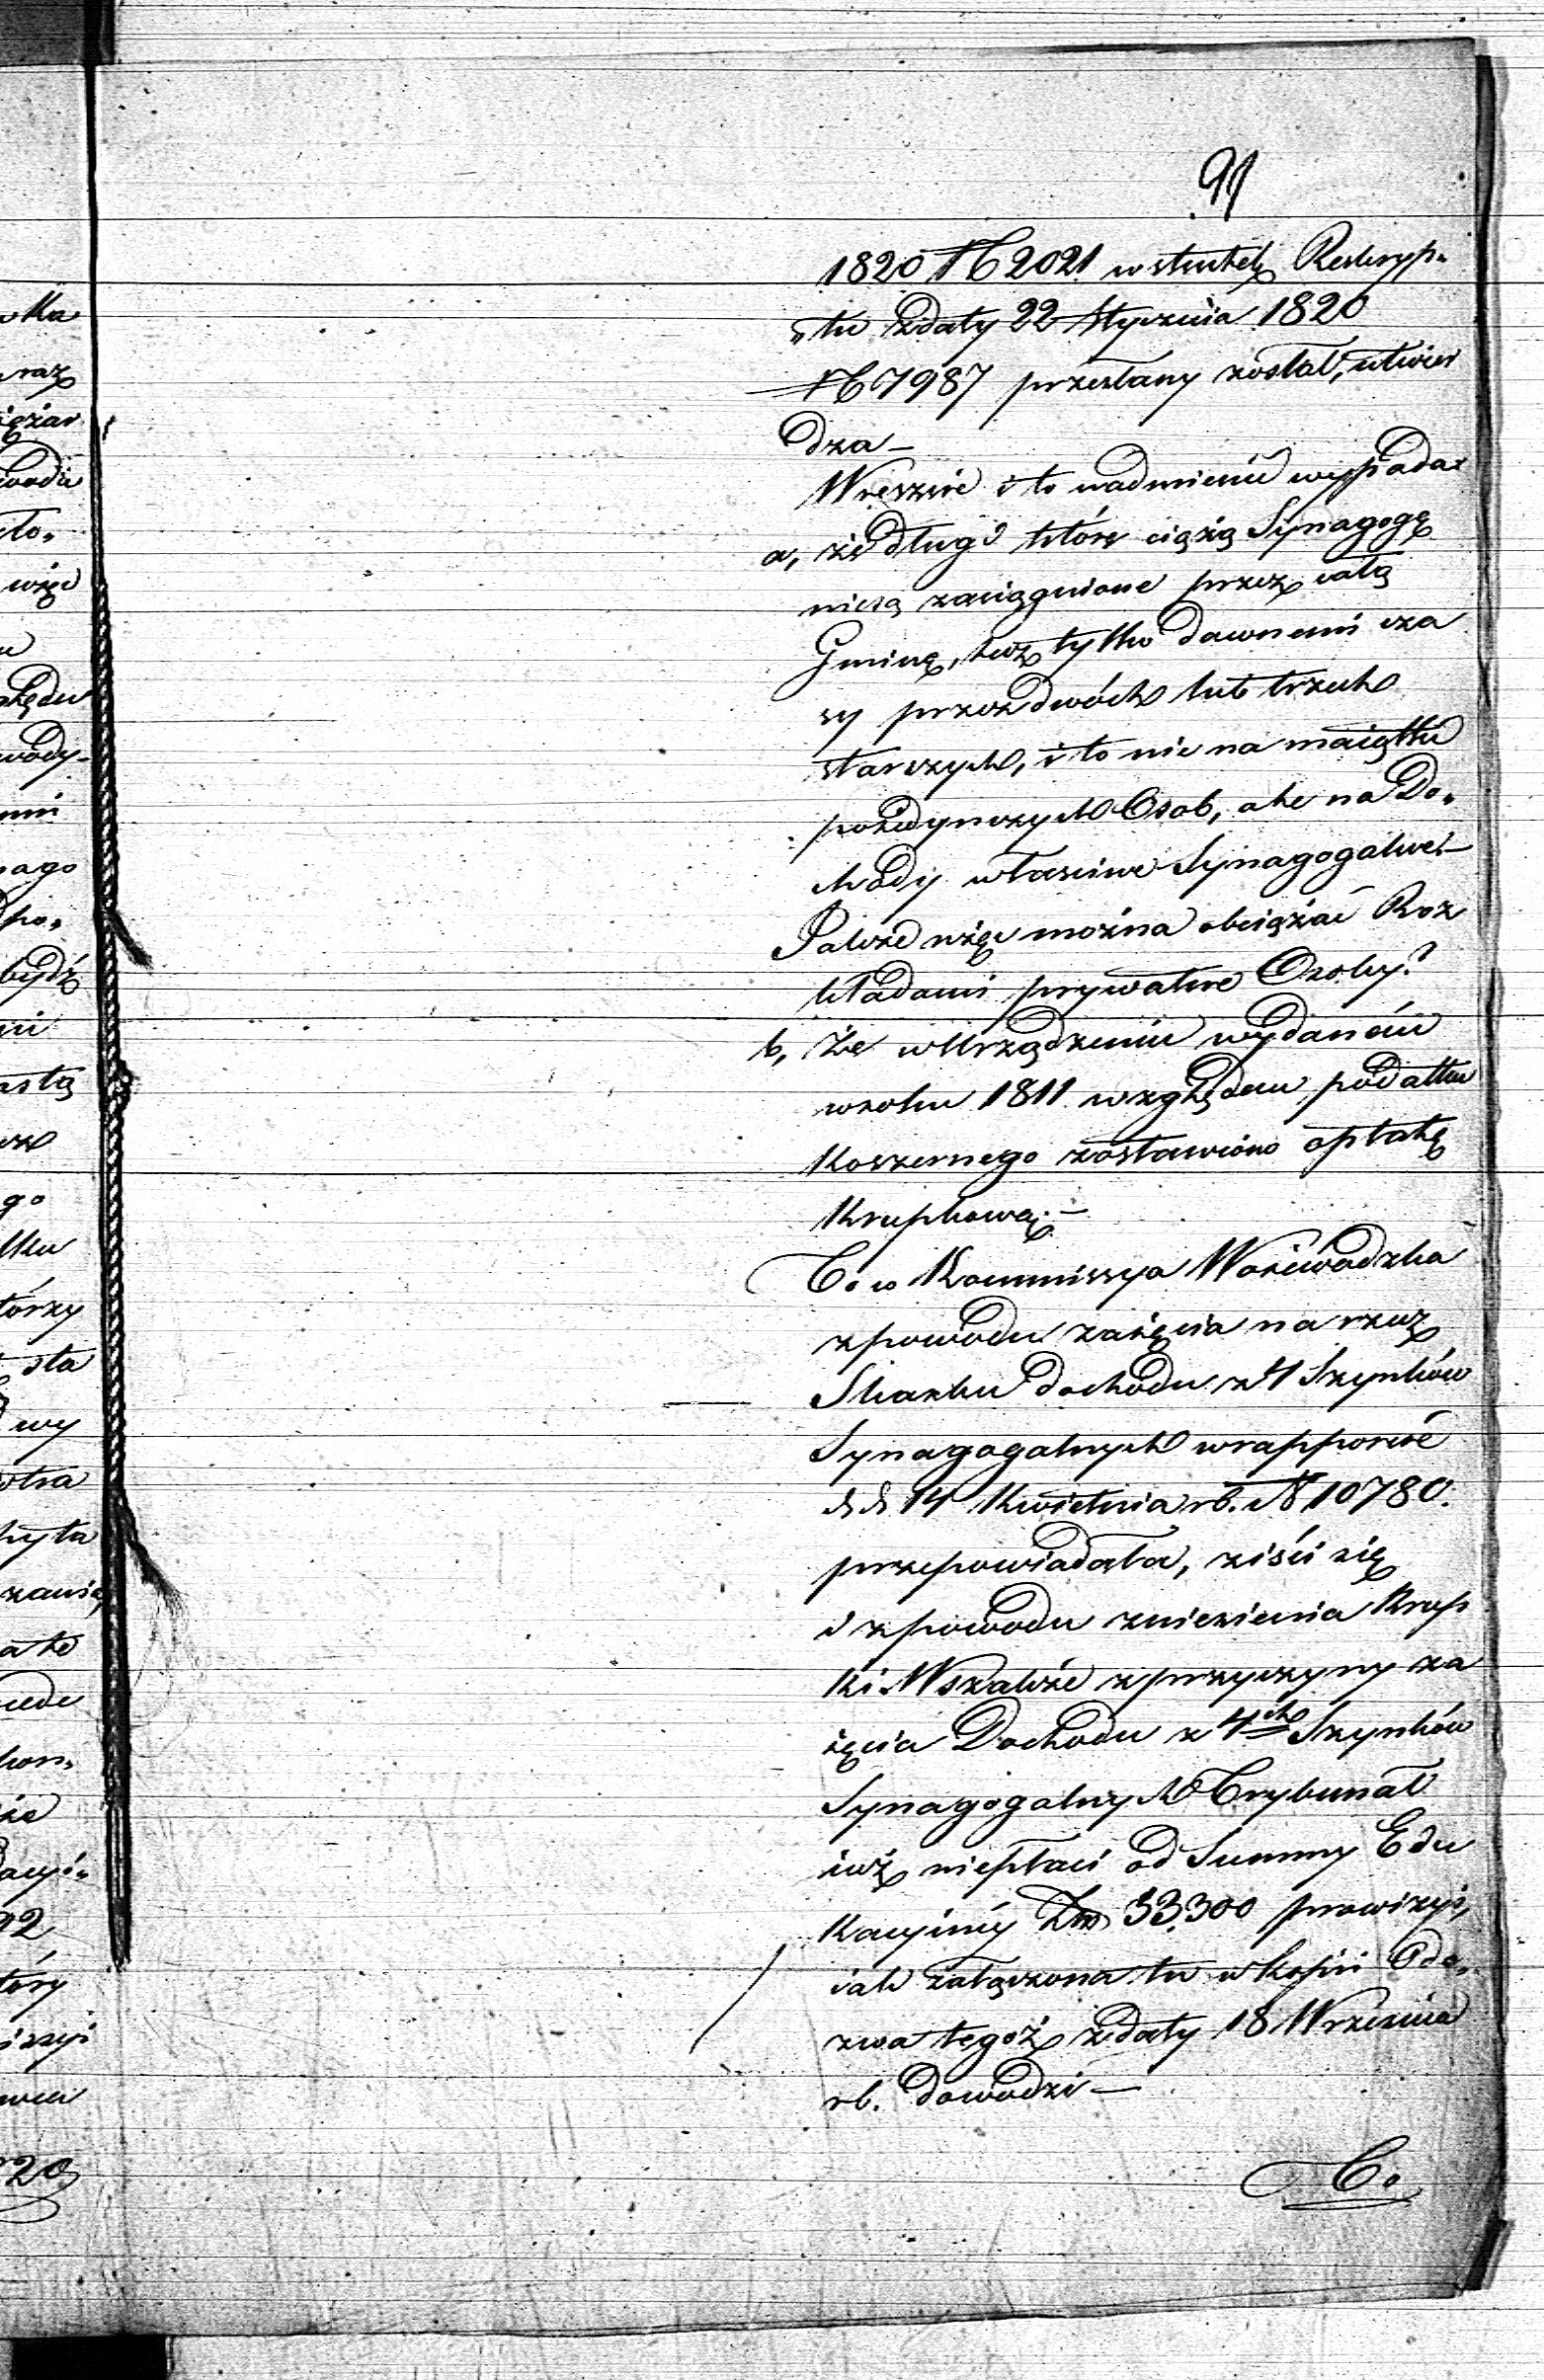 91
1820 № 2021 wskutek Reskryp„
„tu zdaty 22 Stycznia 1820
№ 7987 przesłany został, utwier
dza —
Wreszcie i to nadmienić wypada:
a, że długi które ciążą Synagogę
niesą zaciągnione przez całą
Gminę, lecz tylko dawnemi cza
sy przez dwóch lub trzech
starszych, i to nie na maiątku
poiedynczych Osob, ale na Do„
chody właściwe Synagogalne! —
Jakże więc można obciążać Roz
kładami prywatne Osoby?
b, Że w Urządzeniu wydaném
wroku 1811 względem podatku
Koszernego zostawiono opłatę
Krupkową. —
Co Kommissya Woiewodzka
zpowodu zaięcia na rzecz
Skarbu dochodu z 4 Szynków
Synagogalnych wrapporcie
dd 14 Kwietnia rb. № 10780.
przepowiadała, ziści się
i zpowodu zniesienia Krup
ki. Wszakże zprzyczyny za
ięcia Dochodu z 4ch Szynków
Synagogalnych Trybunał
iuż niepłaci od Summy Edu
kacyiney Złp 33,300 prowizyi,
iak załączona tu w kopii Ode„
zwa tegoż zdaty 18 Września
rb. dowodzi —
Co